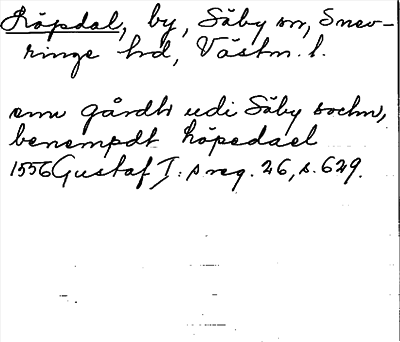 Köpsdal, by, Säby sn, Snev-
ringe hd, Västm. l.
enn gårdh udi Säby sochn,
benempdt Köpsdael
1556 Gustaf I:s reg. 26, s. 629.